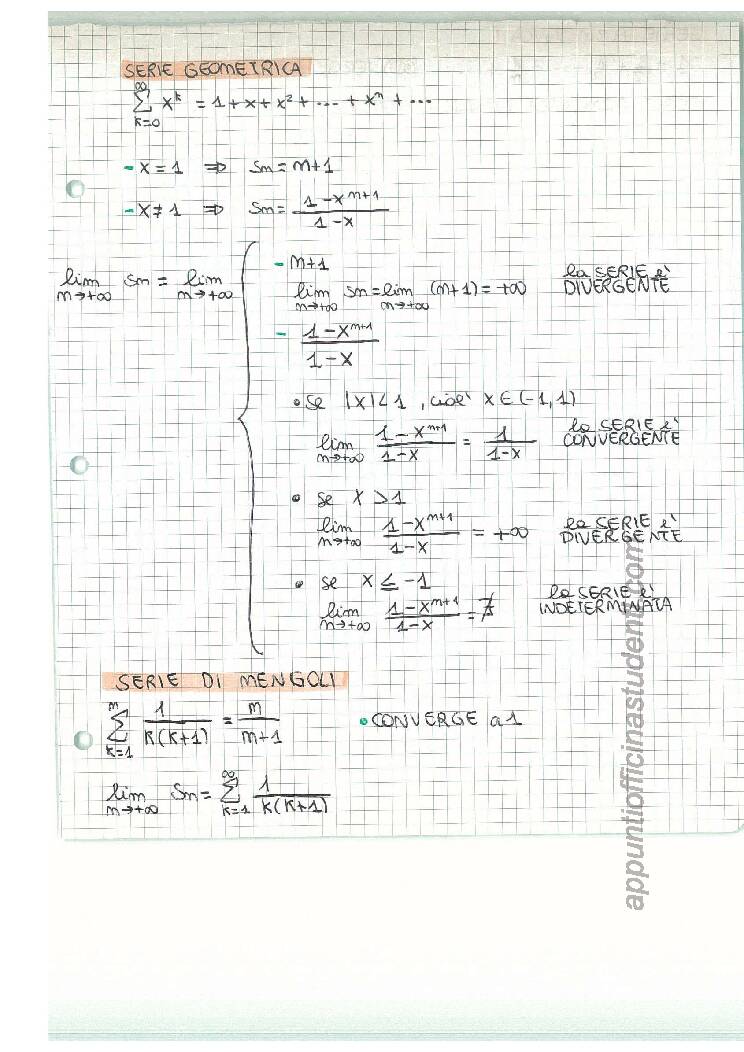 SERIE GEOMETRICA
∞
∑ x^k = 1 + x + x² + ... + x^n + ...
k=0
- x = 1 ⇒ Sn = n+1
- x ≠ 1 ⇒ Sn = (1 - x^(n+1)) / (1 - x)
lim n→+∞ Sn = lim n→+∞ {
- n+1
lim n→+∞ Sn = lim n→+∞ (n+1) = +∞ la SERIE e' DIVERGENTE
- (1 - x^(n+1)) / (1 - x)
• se |x| < 1, cioe' x ∈ (-1, 1)
lim n→+∞ (1 - x^(n+1)) / (1 - x) = 1 / (1 - x) la SERIE e' CONVERGENTE
• se x > 1
lim n→+∞ (1 - x^(n+1)) / (1 - x) = +∞ la SERIE e' DIVERGENTE
• se x ≤ -1
lim n→+∞ (1 - x^(n+1)) / (1 - x) = ∄ la SERIE e' INDETERMINATA
SERIE DI MENGOLI
n
∑ 1 / (k(k+1)) = n / (n+1) • CONVERGE a 1
k=1
lim n→+∞ Sn = ∑ k=1 ∞ 1 / (k(k+1))
appuntiofficinastudenti.com